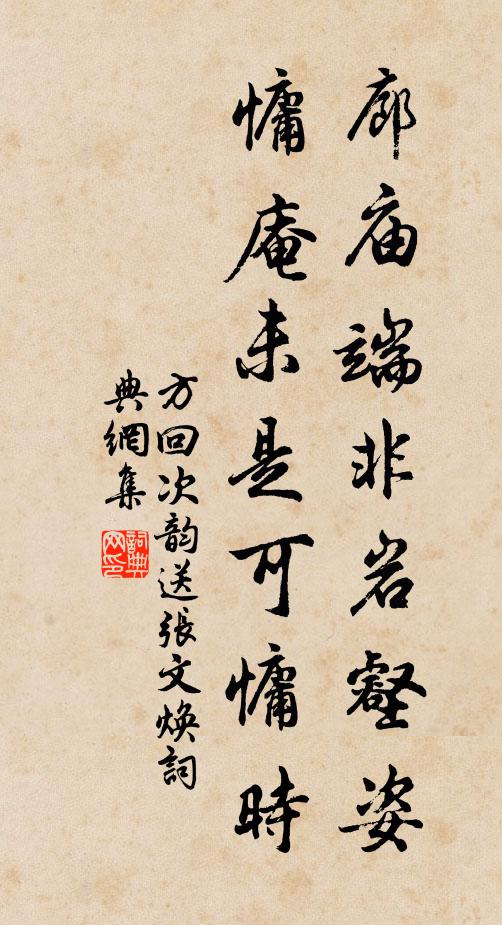 廊庙端非岩壑姿
慵庵未是可慵時
方回次韵送張文焕詞
典網集
詞典网印